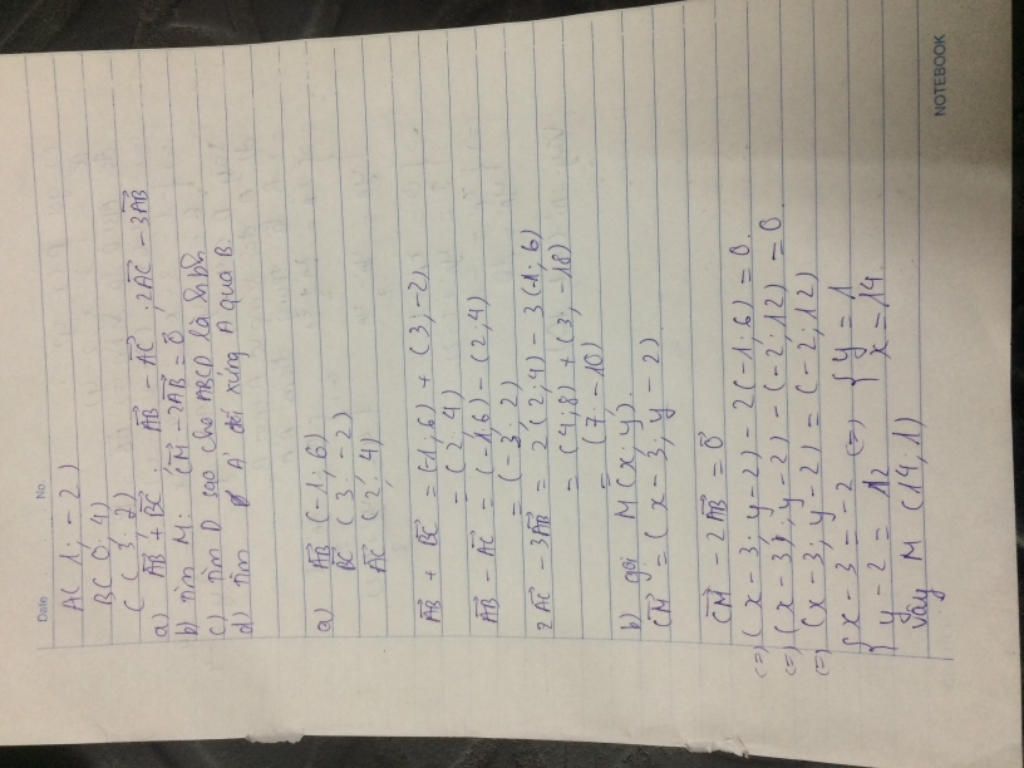 Date No.
A( 1; -2 )
B( 0; 4 )
C ( 3; 2)
a) AB + BC . AB - AC , 2AC - 3AB
b) tìm M: CM - 2AB = 0
c) tìm D sao cho ABCD là hbh
d) tìm A' đối xứng A qua B.
a) AB (-1; 6)
BC (3; -2)
AC (2; 4)
AB + BC = (-1; 6) + (3; -2)
= (2; 4)
AB - AC = (-1; 6) - (2; 4)
= (-3; 2)
2AC - 3AB = 2(2;4) - 3(-1; 6)
= (4; 8) + (3; -18)
= (7; -10)
b) gọi M(x; y).
CM = (x - 3; y - 2)
CM - 2AB = 0
(=) (x - 3; y - 2) - 2(-1; 6) = 0.
(=) (x - 3; y - 2) - (-2; 12) = 0
(=) (x - 3; y - 2) = (-2; 12)
{ x - 3 = -2 (=) { y = 1
{ y - 2 = 12 x = 14
Vậy M (14; 1)
NOTEBOOK